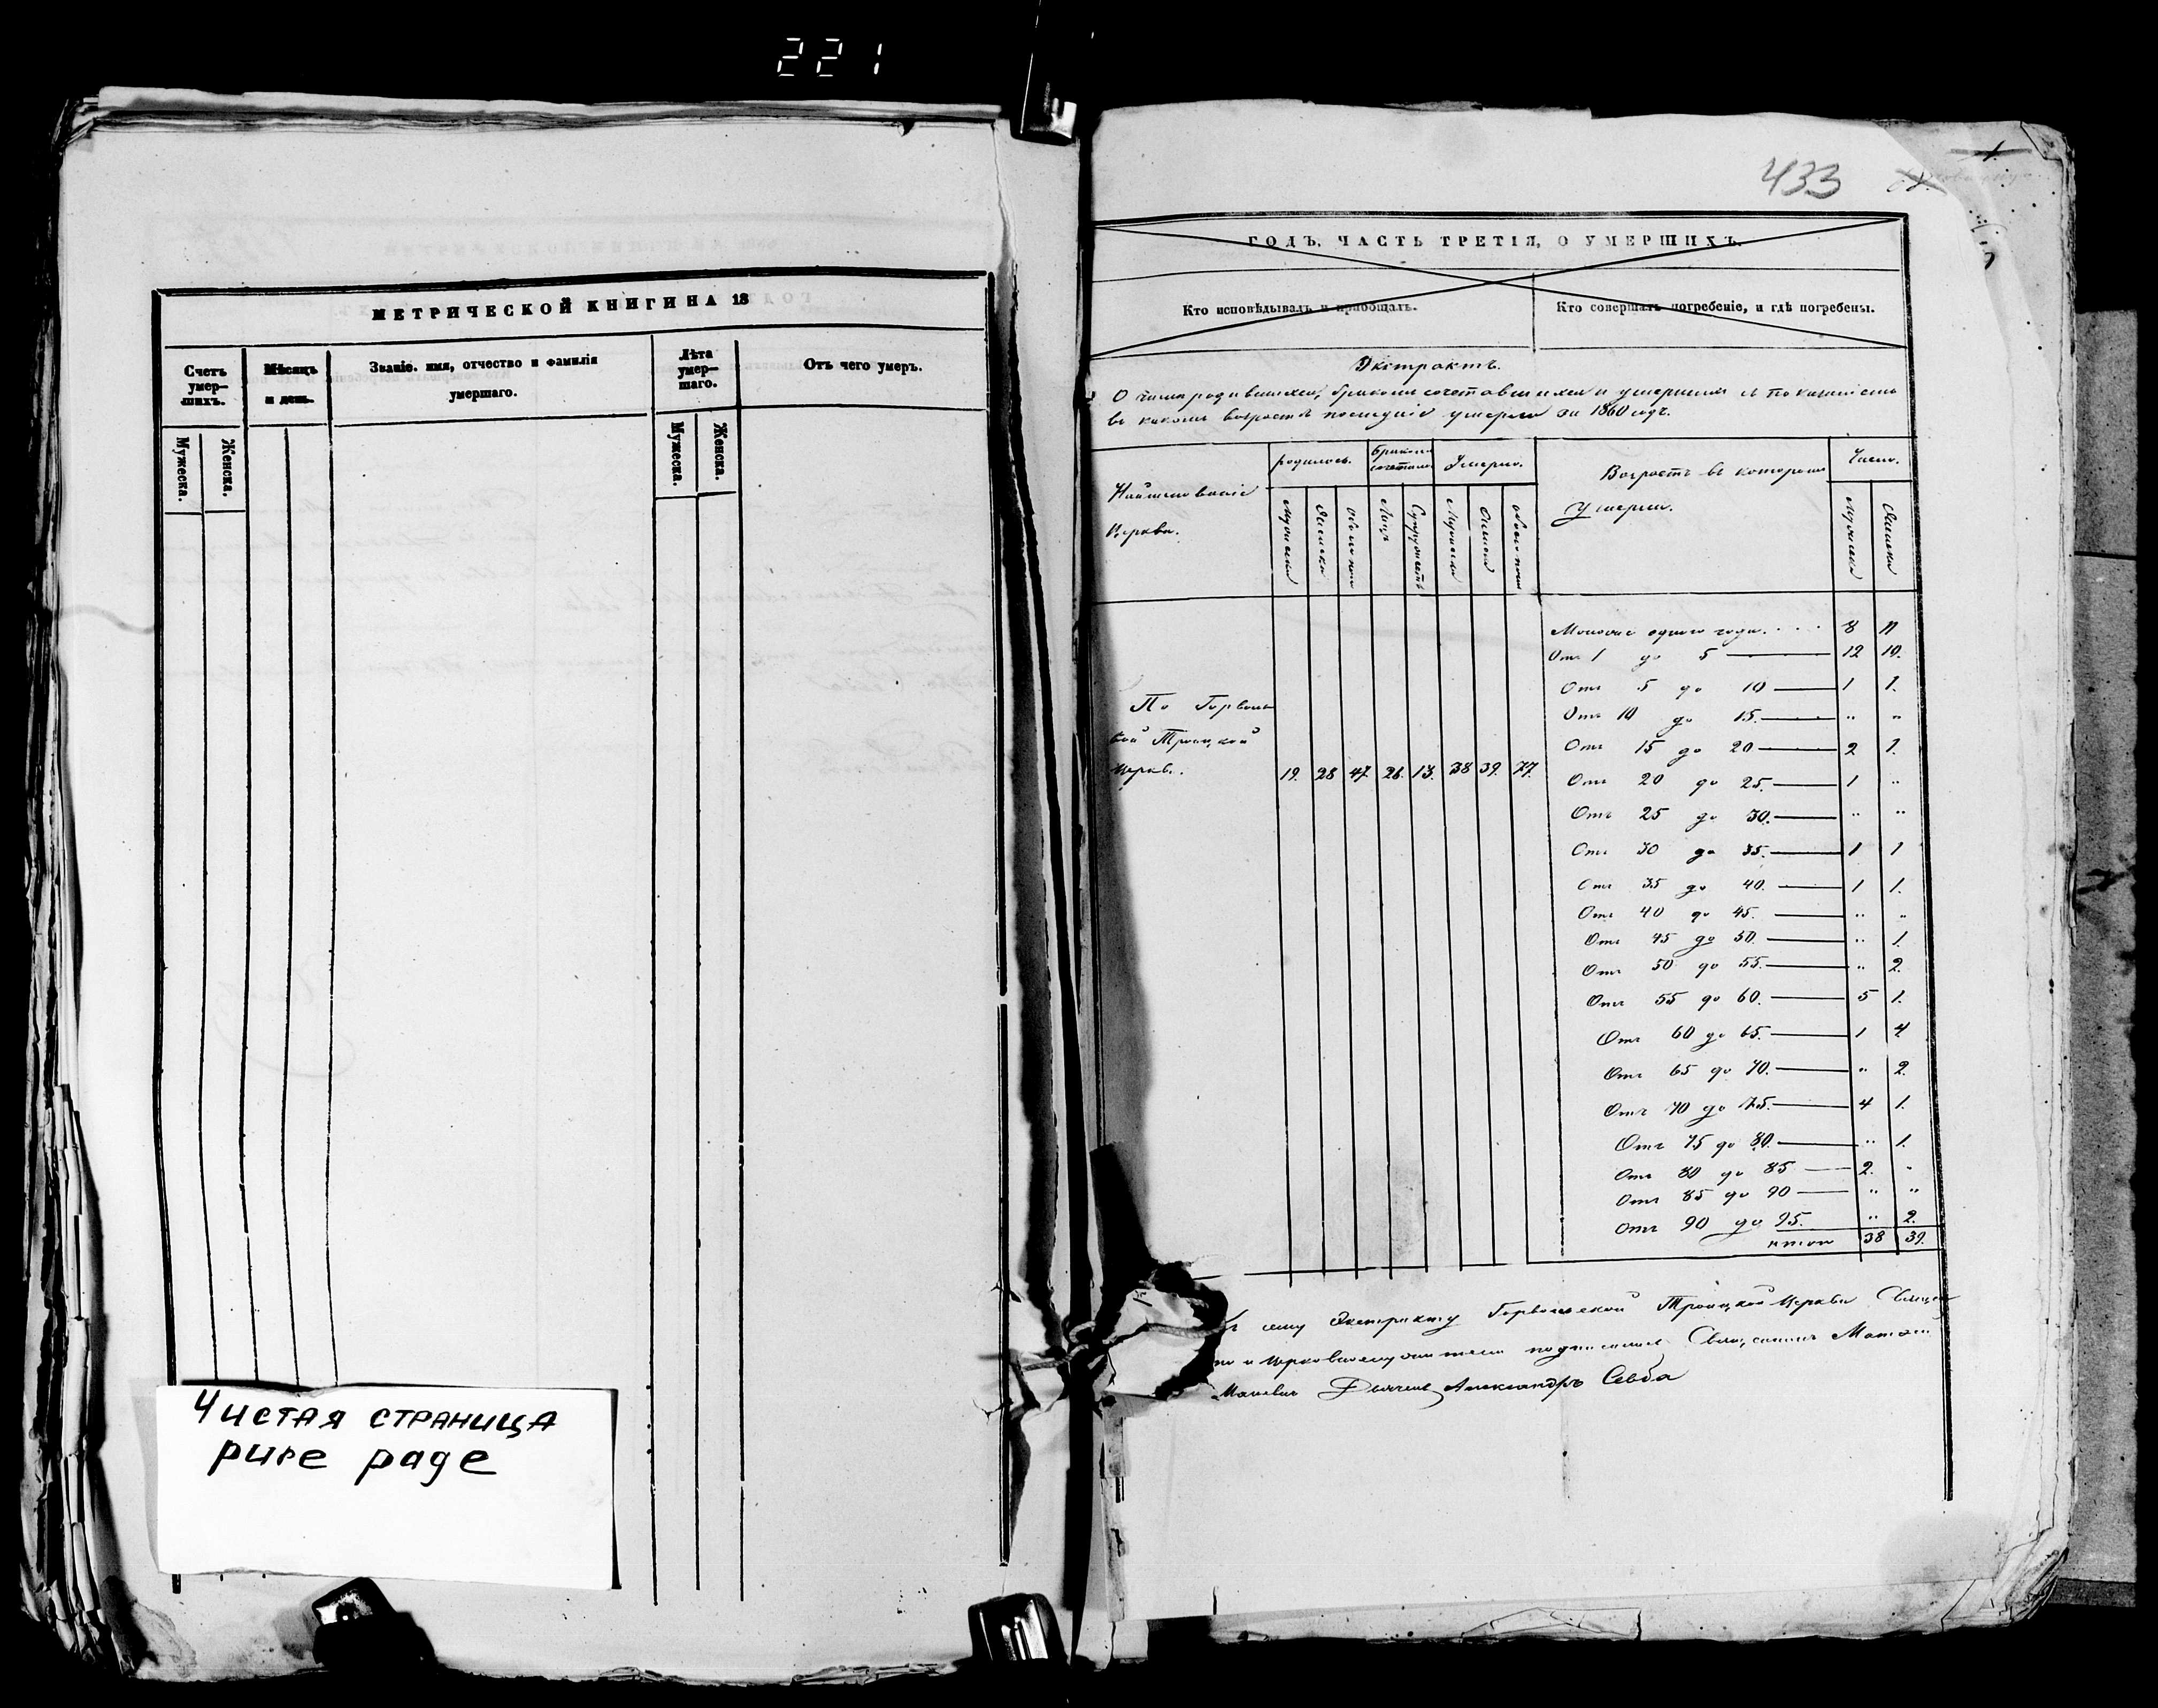 221
МЕТРИЧЕСКОЙ КНИГИ НА 18
Счетъ умер-шихъ.
Мѣсяцъ и день.
Званіе. имя, отчество и фамилія умершаго.
Лѣта умер-шаго.
Отъ чего умеръ.
Мужеска.
Женска.
Мужеска.
Женска.
Чистая страница
pure page
433
ГОДЪ, ЧАСТЬ ТРЕТІЯ, О УМЕРШИХЪ.
Кто исповѣдывалъ и пріобщалъ.
Кто совершалъ погребеніе, и гдѣ погребены.
Экстрактъ.
О числѣ родившихся, бракомъ сочетавшихся и умершихъ съ показаніемъ
въ какомъ возрастѣ послѣдніе умерли за 1860 годъ.
Наименованіе Церкви.
родилось.
Умерло.
Возрастъ въ которомъ умерли.
Число.
Мужеска
Женска
Обоего пола
Лицъ
Супружествъ
Мужеска
Женска
Обоего пола
Мужеска
Женска
Моложе одного года. 8 11
Отъ 1 до 5 12 10.
Отъ 5 до 10 1 1.
Отъ 10 до 15. " "
Отъ 15 до 20 2 1.
Отъ 20 до 25. 1 "
Отъ 25 до 30. " "
Отъ 30 до 35. 1 1
Отъ 35 до 40. 1 1.
Отъ 40 до 45. " "
Отъ 45 до 50. " 1.
Отъ 50 до 55. " 2.
Отъ 55 до 60. 5 1.
Отъ 60 до 65. 1 4
Отъ 65 до 70. " 2.
Отъ 70 до 75. 4 1.
Отъ 75 до 80. " 1.
Отъ 80 до 85 2. "
Отъ 85 до 90 " "
Отъ 90 до 95. " 2.
итого 38 39.
По
Троицкой
Церкв. 19. 28 47 26. 13. 38 39. 77.
сему Экстракту Троицкой Церкви
подписались Священникъ
Александръ